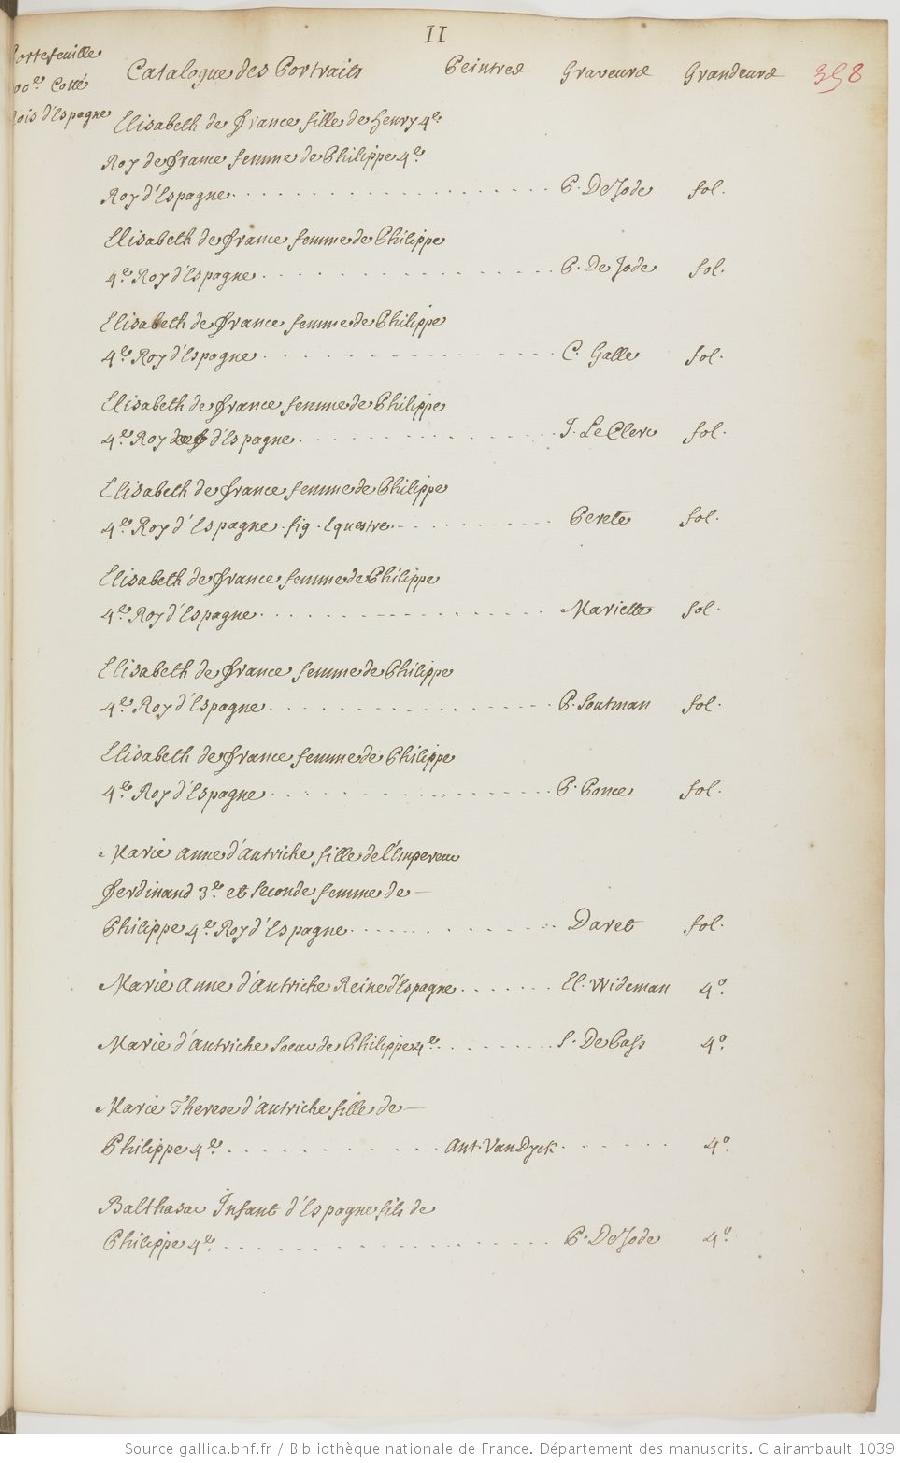 11
Portefeuille
Coté
Rois d'Espagne
Catalogue des Portraits Peintres Graveurs Grandeurs 358
Elisabeth de France fille de Henry 4e
Roy de france femme de Philippe 4e
Roy d'Espagne P. De Jode fol.
Elisabeth de france femme de Philippe
4e Roy d'Espagne P. De Jode fol.
Elisabeth de france femme de Philippe
4e Roy d'Espagne C. Galle fol.
Elisabeth de france femme de Philippe
4e Roy d'Espagne J. Le Clerc fol.
Elisabeth de france femme de Philippe
4e Roy d'Espagne fig. Equesire Perete fol.
Elisabeth de france femme de Philippe
4e Roy d'Espagne Mariette fol.
Elisabeth de france femme de Philippe
4e Roy d'Espagne P. Soutman fol.
Elisabeth de france femme de Philippe
4e Roy d'Espagne P. Ponce fol.
Marie Anne d'Autriche fille de l'Empereur
Ferdinand 3e et seconde femme de
Philippe 4e Roy d'Espagne Daret fol.
Marie Anne d'Autriche Reine d'Espagne El. Wideman 4o.
Marie d'Autriche Soeur de Philippe 4e S. De Pass 4o.
Marie Therese d'Autriche fille de
Philippe 4e Ant. Van Dyck 4o.
Balthasar Infant d'Espagne fils de
Philippe 4e P. De Jode 4o.
Source gallica.bnf.fr / Bibliothèque nationale de France. Département des manuscrits. Clairambault 1039